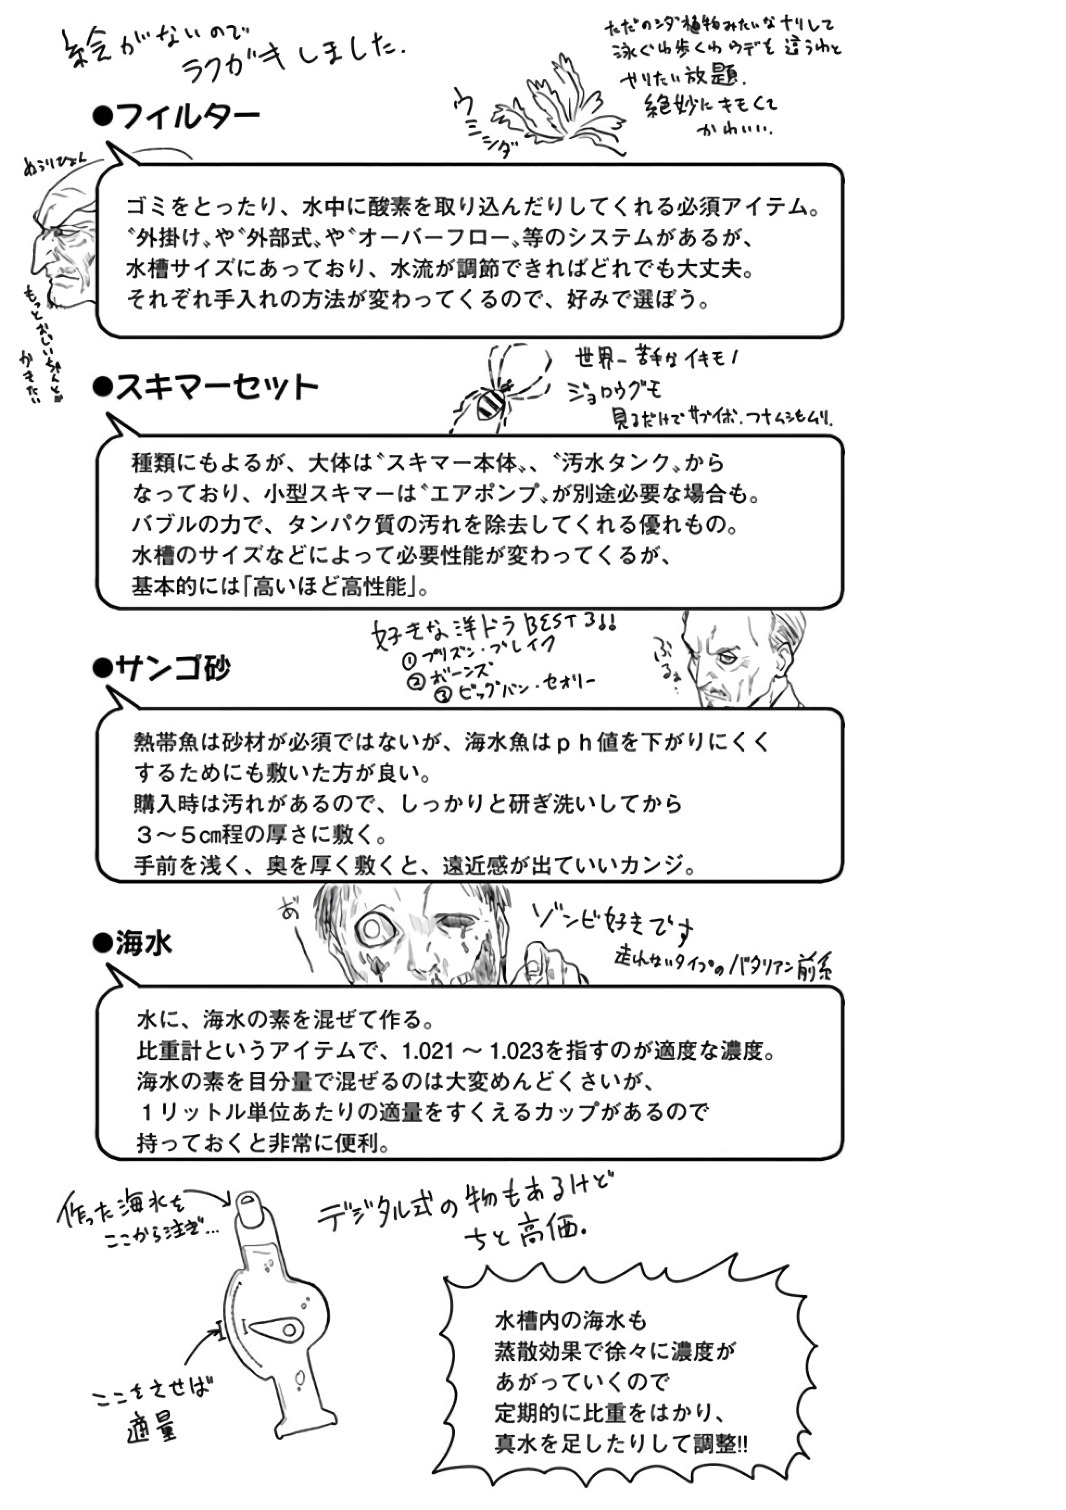 絵がないので
ラクガキしました.
ただのシダ植物みたいなナリして
泳ぐわ歩くわウデを這うわと
やりたい放題.
絶妙にキモくて
かわいい.
ウミシダ
●フィルター
ぬらりひょん
もっとおじいちゃんとか
かきたい
ゴミをとったり、水中に酸素を取り込んだりしてくれる必須アイテム。
〝外掛け〟や〝外部式〟や〝オーバーフロー〟等のシステムがあるが、
水槽サイズにあっており、水流が調節できればどれでも大丈夫。
それぞれ手入れの方法が変わってくるので、好みで選ぼう。
世界一苦手なイキモノ
ジョロウグモ
見るだけでサブイボ.フナムシもムリ.
●スキマーセット
種類にもよるが、大体は〝スキマー本体〟、〝汚水タンク〟から
なっており、小型スキマーは〝エアポンプ〟が別途必要な場合も。
バブルの力で、タンパク質の汚れを除去してくれる優れもの。
水槽のサイズなどによって必要性能が変わってくるが、
基本的には「高いほど高性能」。
好きな洋ドラBEST3!!
①プリズン・ブレイク
②ボーンズ
③ビッグバン・セオリー
●サンゴ砂
熱帯魚は砂材が必須ではないが、海水魚はｐｈ値を下がりにくく
するためにも敷いた方が良い。
購入時は汚れがあるので、しっかりと研ぎ洗いしてから
３～５㎝程の厚さに敷く。
手前を浅く、奥を厚く敷くと、遠近感が出ていいカンジ。
ゾンビ好きです
走れないタイプのバタリアン前系
●海水
水に、海水の素を混ぜて作る。
比重計というアイテムで、1.021 ～ 1.023を指すのが適度な濃度。
海水の素を目分量で混ぜるのは大変めんどくさいが、
１リットル単位あたりの適量をすくえるカップがあるので
持っておくと非常に便利。
作った海水を
ここから注ぎ…
デジタル式の物もあるけど
ちと高価.
ここをさせば
適量
水槽内の海水も
蒸散効果で徐々に濃度が
あがっていくので
定期的に比重をはかり、
真水を足したりして調整!!